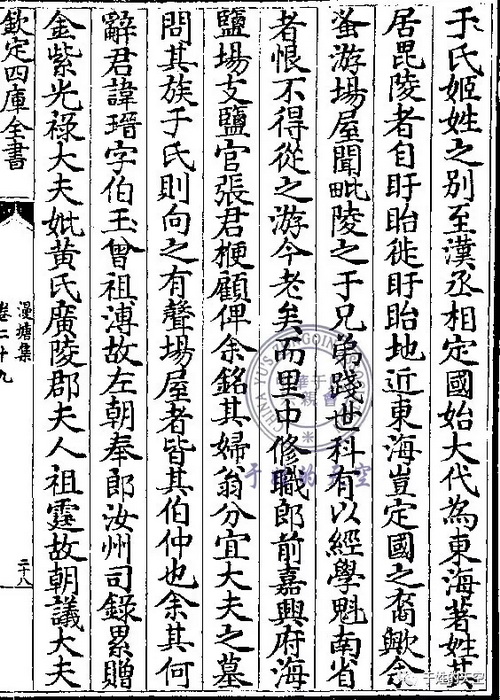 于氏姬姓之别至漢丞相定國始大代為東海著姓其
居毘陵者自盱眙徙盱眙地近東海豈定國之裔歟余
蚤游場屋聞毗陵之于兄弟踐世科有以經學魁南省
者恨不得從之游今老矣而里中修職郎前嘉興府海
鹽場支鹽官張君梗顧俾余銘其婦翁分宜大夫之墓
問其族于氏則向之有聲場屋者皆其伯仲也余其何
辭君諱瑨字伯玉曾祖溥故左朝奉郎汝州司錄累贈
金紫光祿大夫妣黃氏廣陵郡夫人祖霆故朝議大夫
欽定四庫全書
漫塘集
卷二十九
二十八